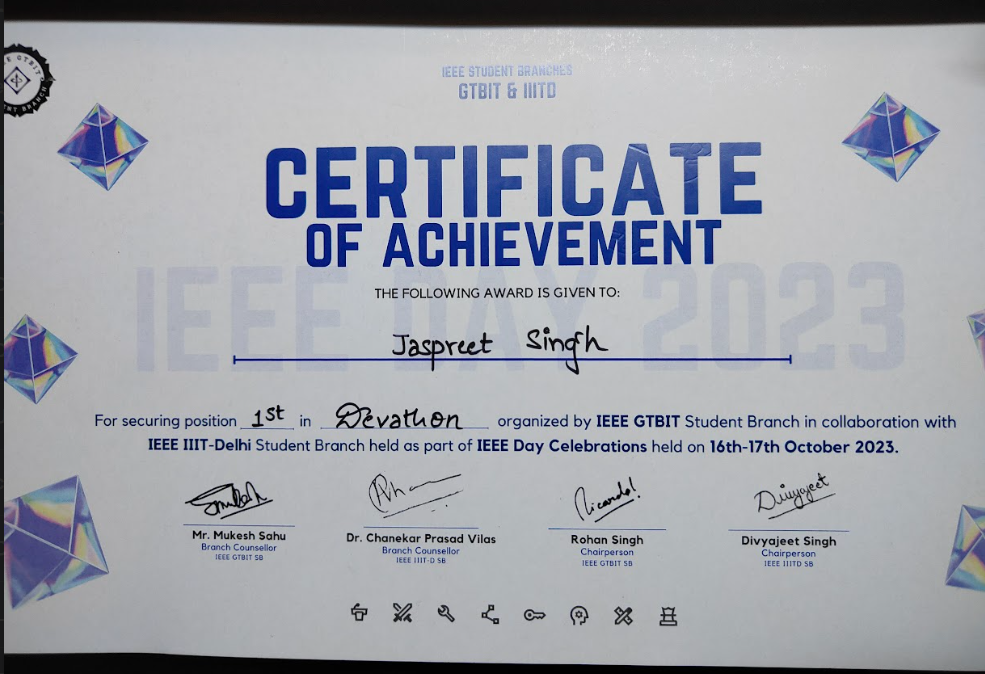 IEEE STUDENT BRANCHES
GTBIT & IIITD
CERTIFICATE
OF ACHIEVEMENT
IEEE DAY 2023
THE FOLLOWING AWARD IS GIVEN TO:
Jaspreet Singh
For securing position 1st in Devathon organized by IEEE GTBIT Student Branch in collaboration with
IEEE IIIT-Delhi Student Branch held as part of IEEE Day Celebrations held on 16th-17th October 2023.
Mr. Mukesh Sahu
Branch Counsellor
IEEE GTBIT SB
Dr. Chanekar Prasad Vilas
Branch Counsellor
IEEE IIIT-D SB
Rohan Singh
Chairperson
IEEE GTBIT SB
Divyajeet
Divyajeet Singh
Chairperson
IEEE IIITD SB